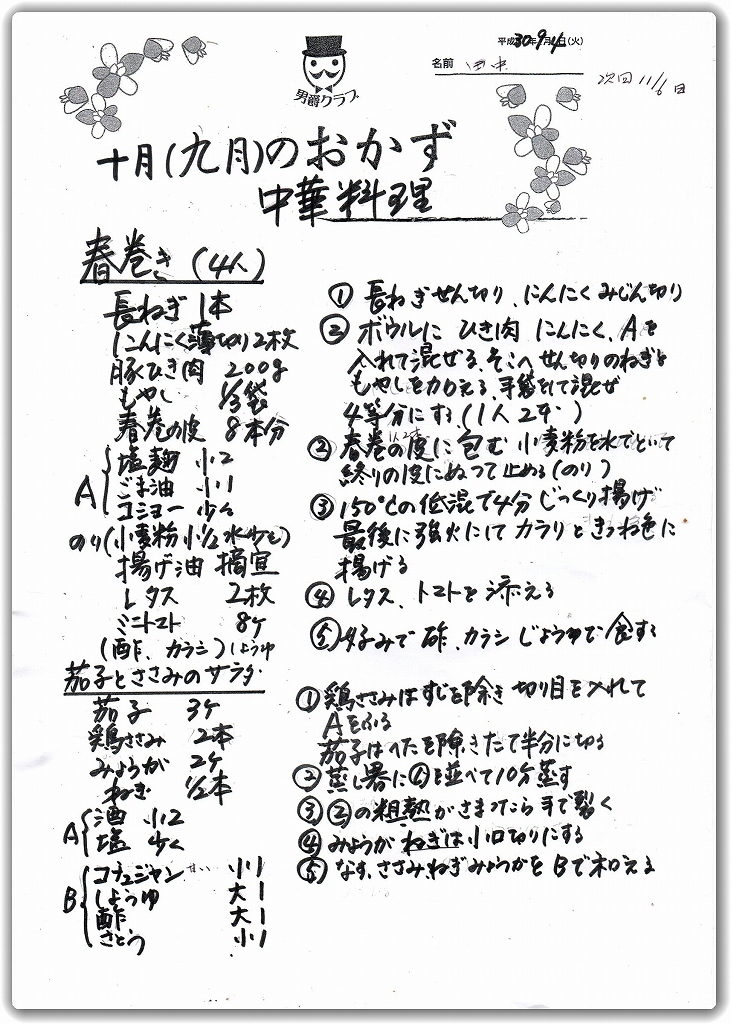 平成30年9月4日(火)
名前 田中
次回 11/6日
男爵クラブ
十月(九月)のおかず
中華料理
春巻き (4人)
長ねぎ 1本
にんにく薄切り2枚
豚ひき肉 200g
もやし 1/3袋
春巻の皮 8本分
A 塩麹 小2
ごま油 小1
コショー 少々
のり(小麦粉 小1/2 水少し)
揚げ油 摘宜
レタス 2枚
ミニトマト 8ケ
(酢、カラシ)しょうゆ
① 長ねぎせん切り、にんにくみじん切り
② ボウルに ひき肉 にんにく、Aを
入れて混ぜる、そこへせん切りのねぎと
もやしを加える、手袋をして混ぜ
4等分にする(1人2ケ)
② 春巻の皮に包む 小麦粉を水でといて
終りの皮にぬって止める(のり)
③ 150℃の低混で4分じっくり揚げ
最後に強火にしてカラリときつね色に
揚げる
④ レタス、トマトを添える
⑤ 好みで酢、カラシじょうゆで食する
茄子とささみのサラダ
茄子 3ケ
鶏ささみ 2本
みょうが 2ケ
ねぎ 1/2本
A 酒 小2
塩 少々
B コチュジャン 小1
しょうゆ 大1
酢 大1
さとう 小1
① 鶏ささみはすじを除き切り目を入れて
Aをふる
茄子はへたを除きたて半分に切る
② 蒸し器に①を並べて10分蒸す
③ ②の粗熱がさまったら手で裂く
④ みょうがねぎは小口切りにする
⑤ なす、ささみ、ねぎみょうがをBで和える